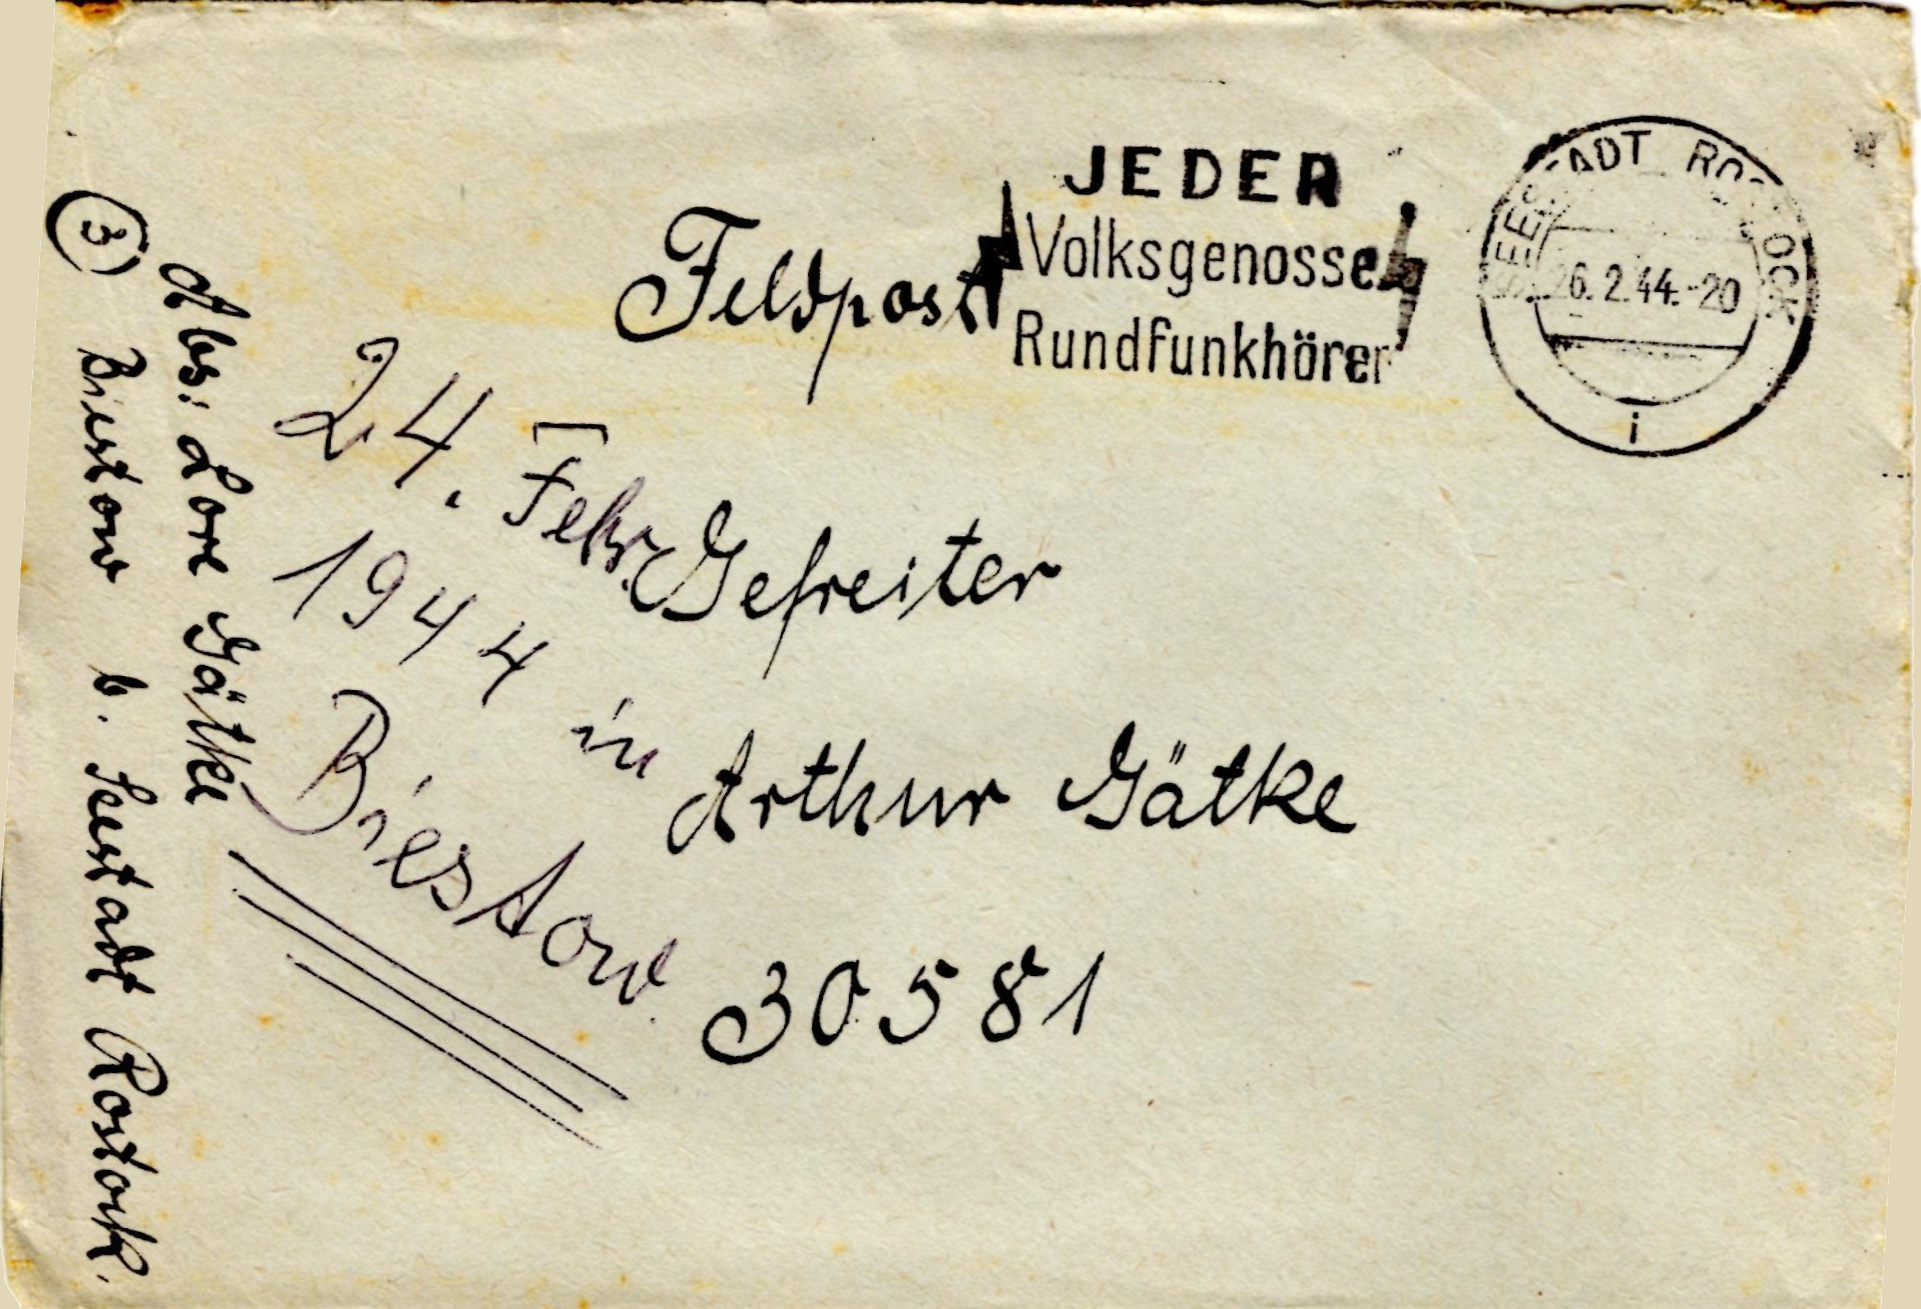 Feldpost
JEDER
Volksgenosse
Rundfunkhörer
SEESTADT ROSTOCK
26.2.44.-20
i
24. Febr.
1944 in
Biestow
Gefreiter
Arthur Gätke
30581
3
Abs: Lore Gätke
Biestow b. Seestadt Rostock.